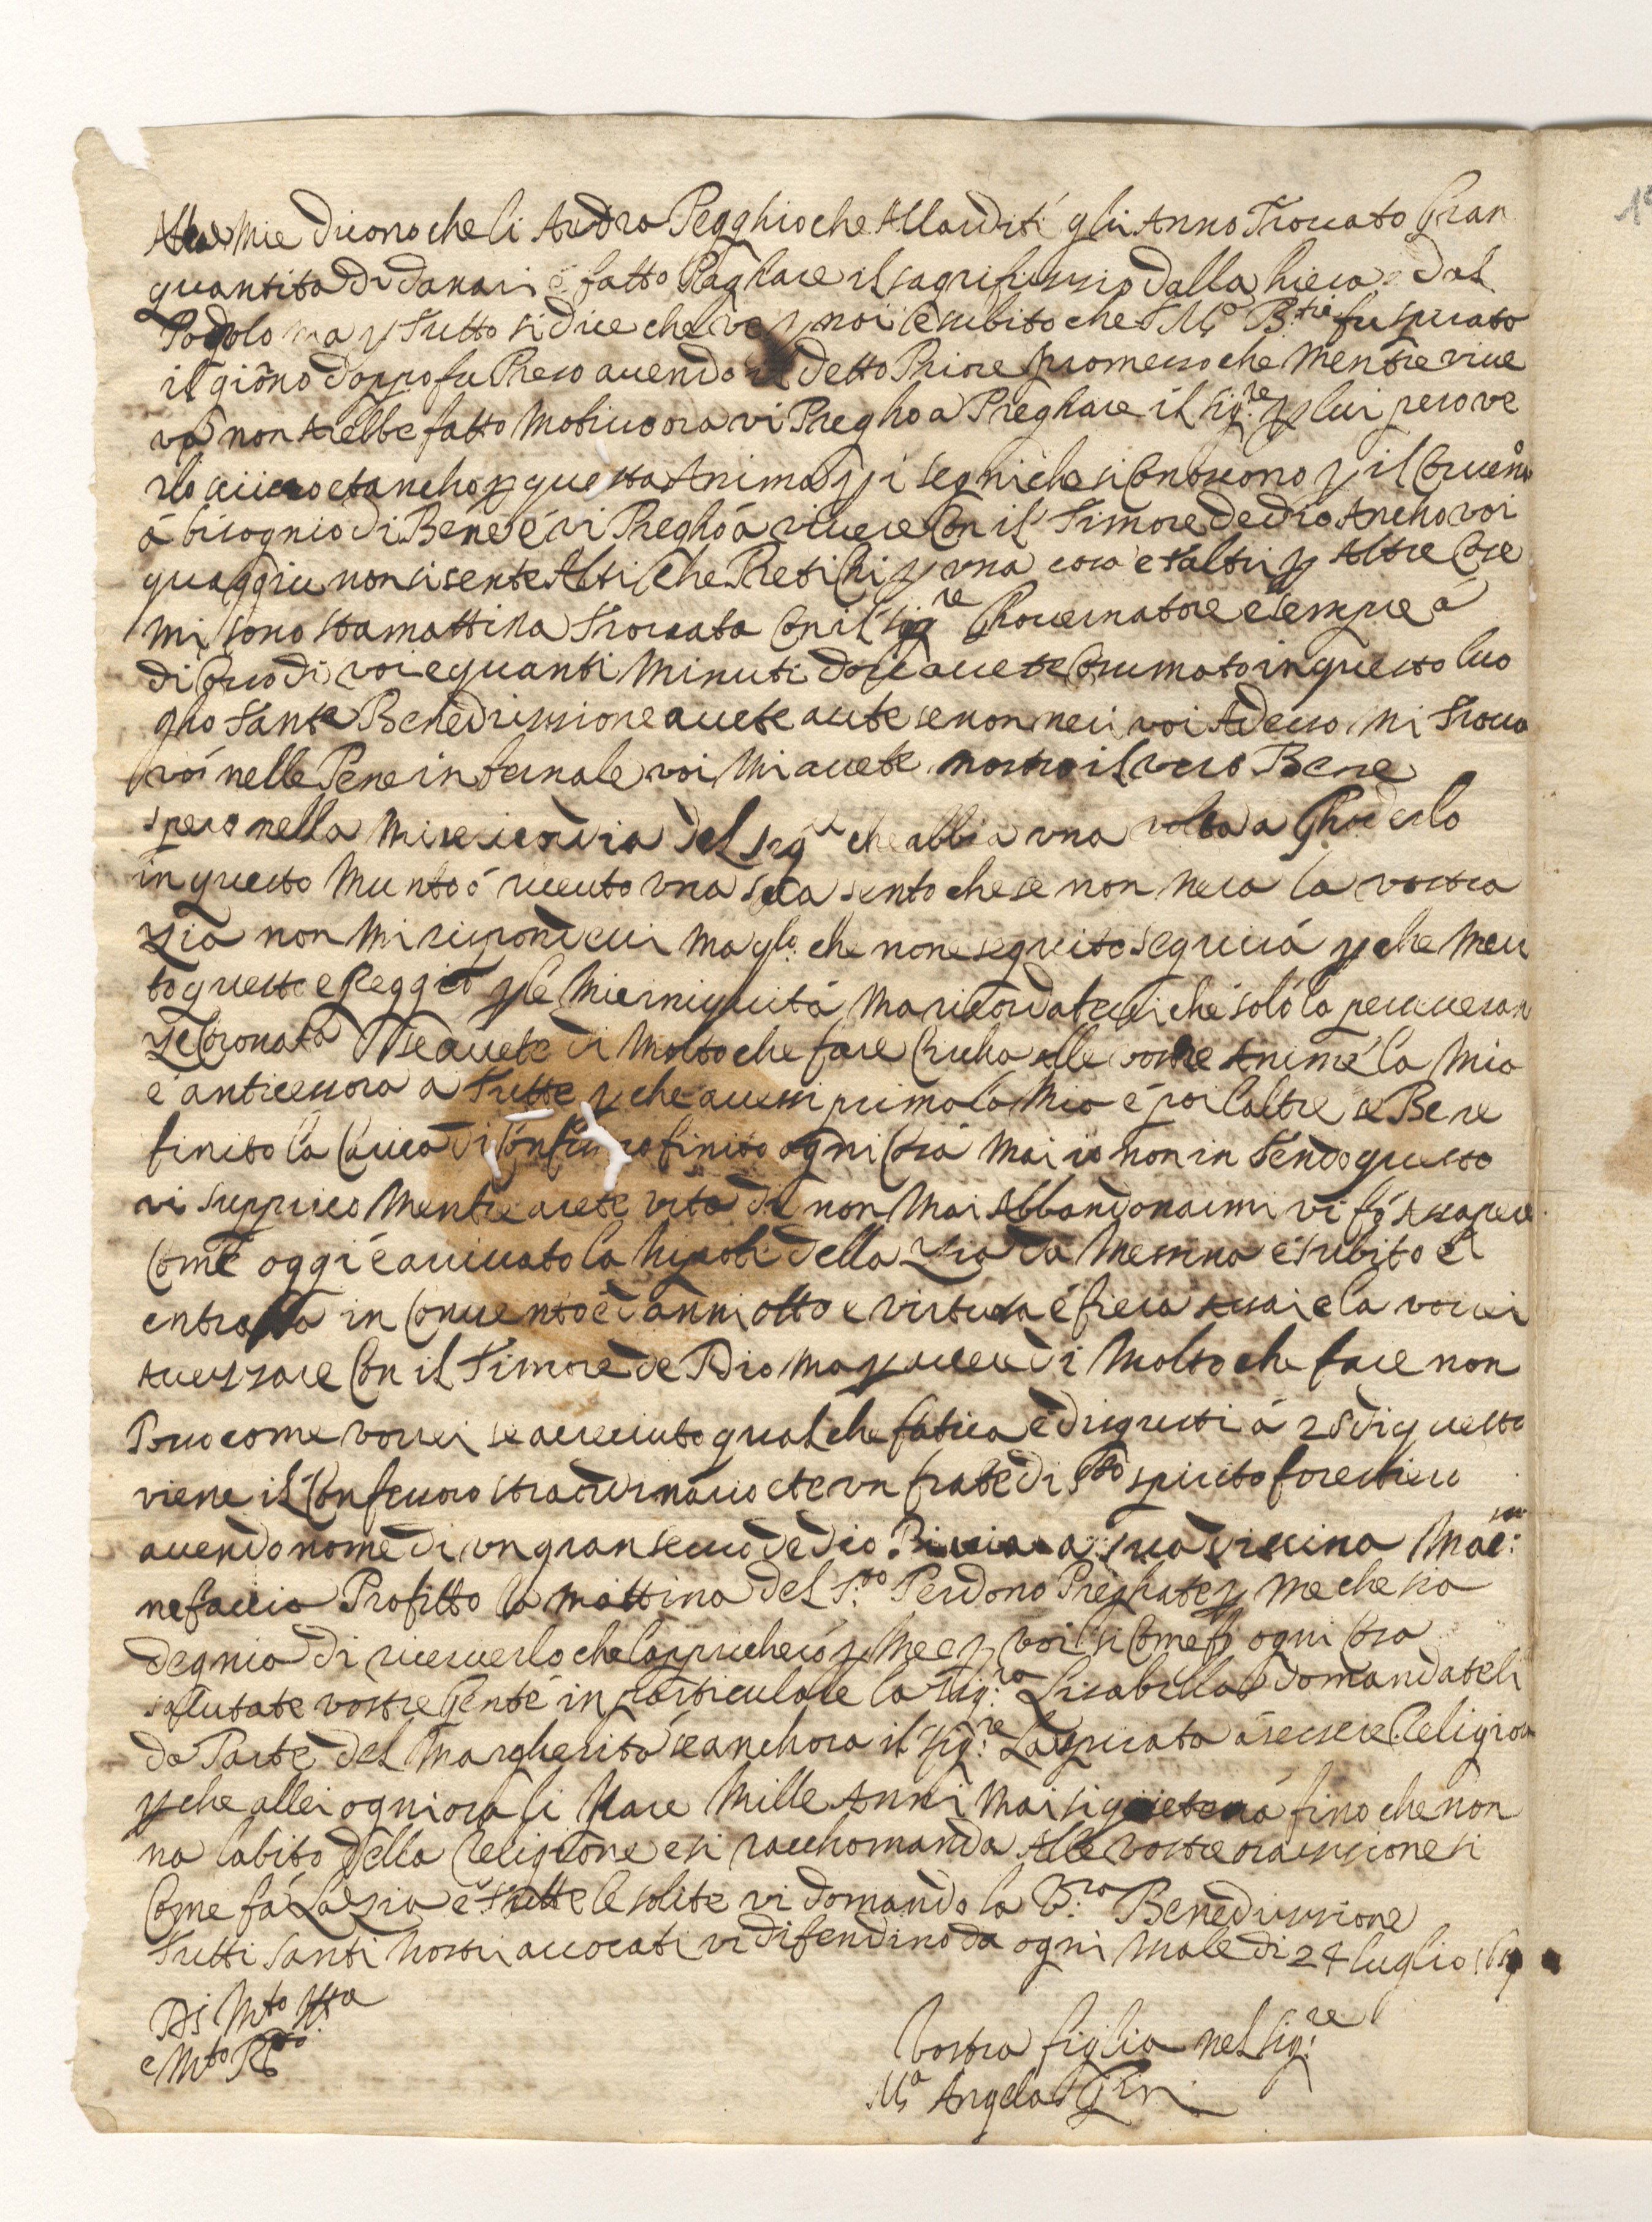 mie dicono che li Andra Pegghio che Allaudití gli Anno Trouato Gran
quantita di danari é fatto Paghare il sagrifissio dalla hiera e dal
Popolo ma p Tutto si dice che ve p noi é subito che S. Mo B.tre fu spirato
il giōno doppo fu Preso auendo il detto Priore promesso che Mentre viue
va non Arebbe fatto Motiuo ora vi Pregho a Preghare il sig.re p lui pero ve
rlo et ancho p questa Anima p i segni che si Conoscono p il
á bisognio di Bene é vi Preghó á viuere Con il Timore de dio Ancho voi
quaggiu non si sente Altri Che Preti Chi p vna cosa e Taltri p Altre Cse
Mi sono stamattina Trouata Con il Sig.re Ghouernatore e sempre á
di voi e quanti Minuti dore auete Csumato in questo luo
gho Tante Benedissione auete aute se non neri voi Adesso Mi Troua
vó nelle Pene infernale voi Mi auete mostro il vero Bene
spero nella Misericordia del Sig.re che abbia vna volta a Ghoderlo
in questo Munto ó riceuto vna Sua sento che se non nera la vostra
Zia non Mi rispondeui ma glo: che none seguito seguirá p che Meri
to questo e peggio p le Mie iniquitá Ma ricordateui ché solo la perseueran
ze Coronata Se auete di Molto che fare Circha alle vostre Anime la Mia
é anticessora a Tutte p che auessi prima la Mia é poi laltre se Bene
finito la Carica di Confessoro finito ogni Cosa Mai io non intendo questo
vi supprico Mentre arete vita di non Mai Abbandonarmi vi fó Assapere
Come oggi é ariuato la Nipote della Zia da Messina é subito é
entrata in Conuento é di anni otto e virtuosa é fiera assai e la vorrei
Auezzare Con il Timore de Dio Ma p auere di Molto che fare non
Posso come vorrei se acresciuto qual che fatica é disgusti á 28 di questo
viene il Confessoro straordinario et e vn frate di Sto spirito forestiero
auendo nome di vn gran seruo de dio. Piaccia a sua diuina Mae:
ne faccia Profitto la mattina del S.to Perdono Preghate p me che sia
degnia di riceuerlo che lappricheró p Me e p voi si Come fó ogni Cosa
salutate vostre Gente in particulare la Sig:ra Lisabetta domandateli
da Parte del Margherita se anchora il Sig:re La spirata á essere Religiosa
p che allei ogni ora li Pare Mille Anni Mai si quieterá fino che non
na labito della Religione e si racchomanda Alle vostre orassione si
Come fá La Zia é Tutte le solite vi domando la V:ra Benedissione
Tutti Santi Nostri auocati vi difendino da ogni Male di 24 luglio
Di Mto Ilsa
e Mto Rdo
Vostra figlia nel Sig:re
Ma Angela Gini